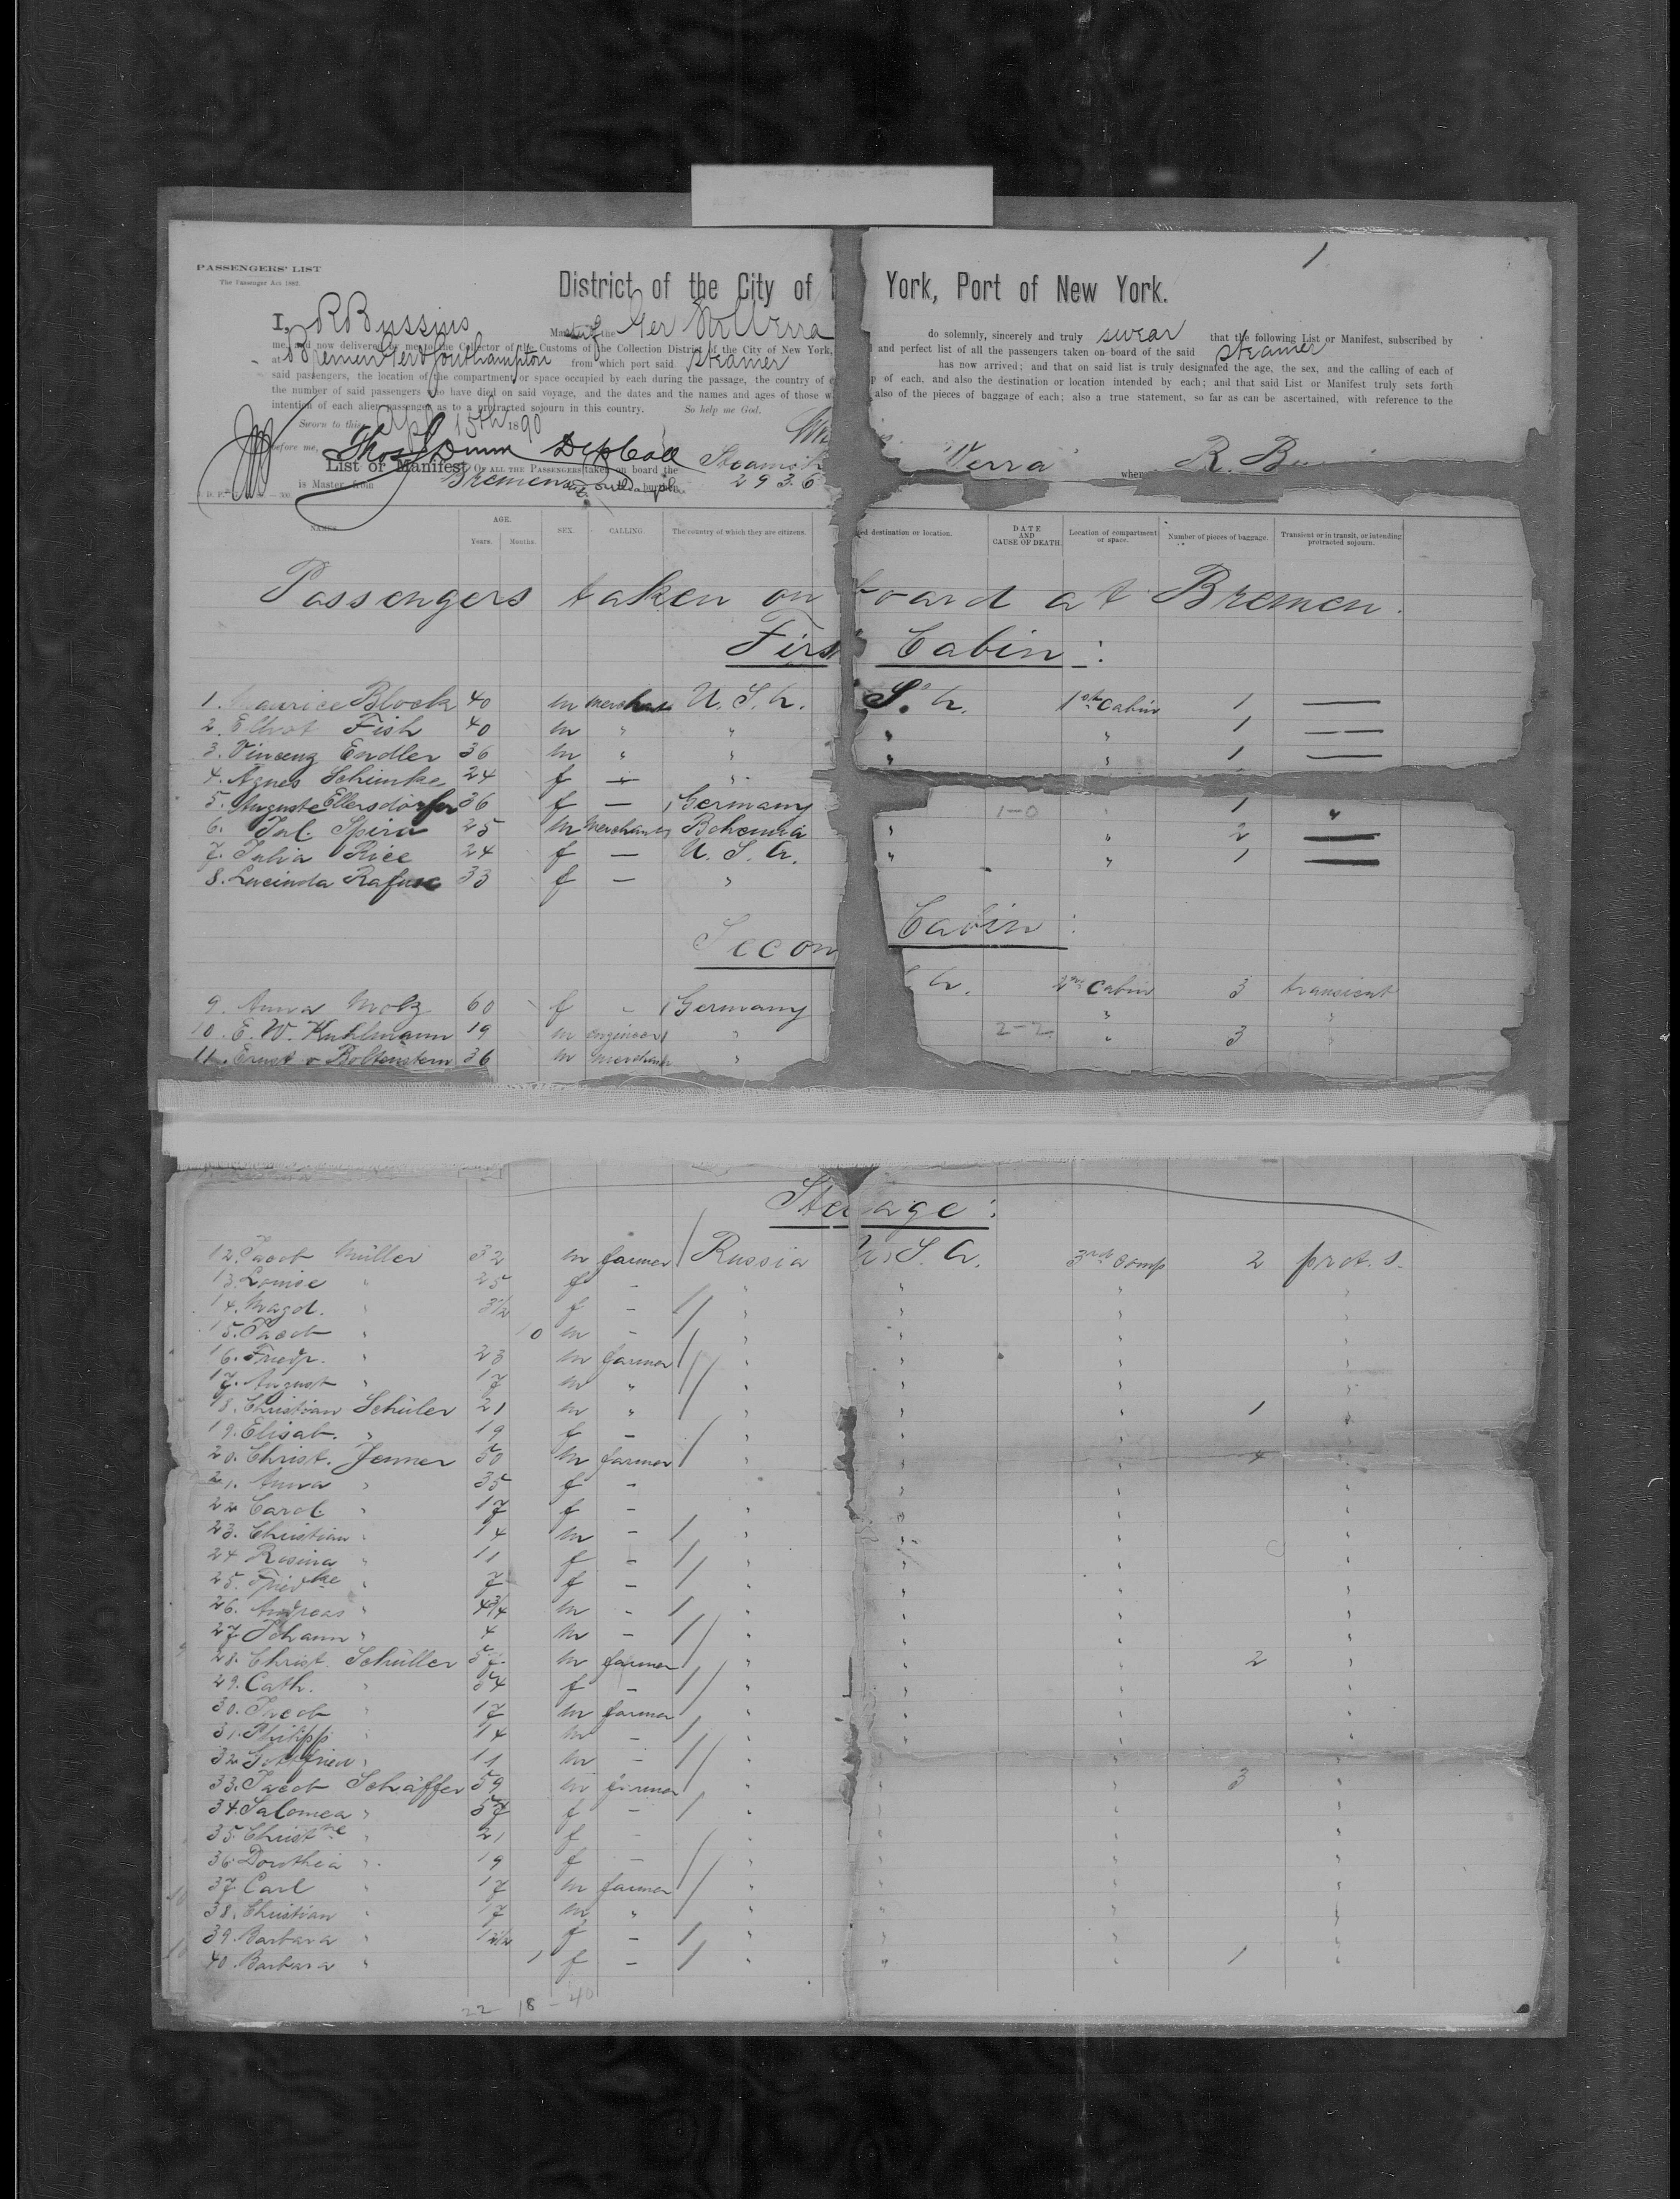 1
PASSENGERS' LIST
The Passenger Act 1882.
District of the City of York, Port of New York.
I, R Bussius Master of the Ger Str Werra do solemnly, sincerely and truly swear that the following List or Manifest, subscribed by
me, and now delivered by me to the Collector of the Customs of the Collection District of the City of New York, and perfect list of all the passengers taken on board of the said steamer
at Bremen and Southampton from which port said steamer has now arrived; and that on said list is truly designated the age, the sex, and the calling of each of
said passengers, the location of the compartment or space occupied by each during the passage, the country of of each, and also the destination or location intended by each; and that said List or Manifest truly sets forth
the number of said passengers who have died on said voyage, and the dates and the names and ages of those also of the pieces of baggage of each; also a true statement, so far as can be ascertained, with reference to the
intention of each alien passenger as to a protracted sojourn in this country. So help me God.
Sworn to this Apl 15th 1890
before me, Thos Dunn Dep Coll
List or Manifest OF ALL THE PASSENGERS taken on board the Steamsh "Werra" R. Bu
is Master, from Bremen burthen 2936
NAMES. AGE. Years. Months. SEX. CALLING. The country of which they are citizens. destination or location. DATE AND CAUSE OF DEATH. Location of compartment or space. Number of pieces of baggage. Transient or in transit, or intending protracted sojourn.
Passengers taken on board at Bremen.
First Cabin:
1. Maurice Block 40 m merchant U. S. A. S. A. 1st Cabin 1 —
2. Elliot Fish 40 m " " " " 1 —
3. Vincenz Endler 36 m " " " " 1 —
4. Agnes Schimke 24 f — "
5. Auguste Ellersdorfer 36 f — Germany 1-0 1 "
6. Jul. Spira 25 m merchant Bohemia " " 2 —
7. Julia Rice 24 f — U. S. A. " " 1 —
8. Lucinda Rafuse 33 f — "
Second Cabin:
9. Anna Motz 60 f - Germany A. 2nd Cabin 3 transient
10. E. W. Kuhlmann 19 m engineer " " "
11. Ernst v Boltenstern 36 m merchant " 2-2 " 3 "
Steerage:
12. Jacob Müller 32 m farmer Russia U. S. A. 3rd Comp 2 prot. s.
13. Louise " 25 f - " " " "
14. Magd. " 3 1/2 f - " " " "
15. Jacob " 10 m - " " " "
16. Friedr. " 23 m farmer " " " "
17. August " 17 m " " " " "
18. Christian Schüler 21 m " " " " 1 "
19. Elisab. " 19 f - " " " "
20. Christ. Jenner 50 m farmer " " " 4 "
21. Anna " 35 f - " " "
22 Carol " 17 f - " " " "
23. Christian " 14 m - " " " "
24 Rosina " 11 f - " " " "
25. Friedke " 7 f - " " " "
26. Andreas " 4 3/4 m - " " " "
27 Johann " 4 m - " " " "
28. Christ. Schüller 57 m farmer " " " 2 "
29. Cath. " 54 f - " " " "
30. Jacob " 17 m farmer " " " "
31. Philipp " 14 m - " " " "
32 Gottfried " 11 m - " " " "
33. Jacob Schäffer 59 m farmer " " " 3 "
34. Salomea " 57 f - " " " "
35. Christne " 21 f - " " " "
36. Dorothea " 19 f - " " " "
37 Carl " 17 m farmer " " " "
38. Christian " 17 m " " " " "
39. Barbara " f - " " " "
40. Barbara " 1 f - " " " 1 "
22 18 - 40